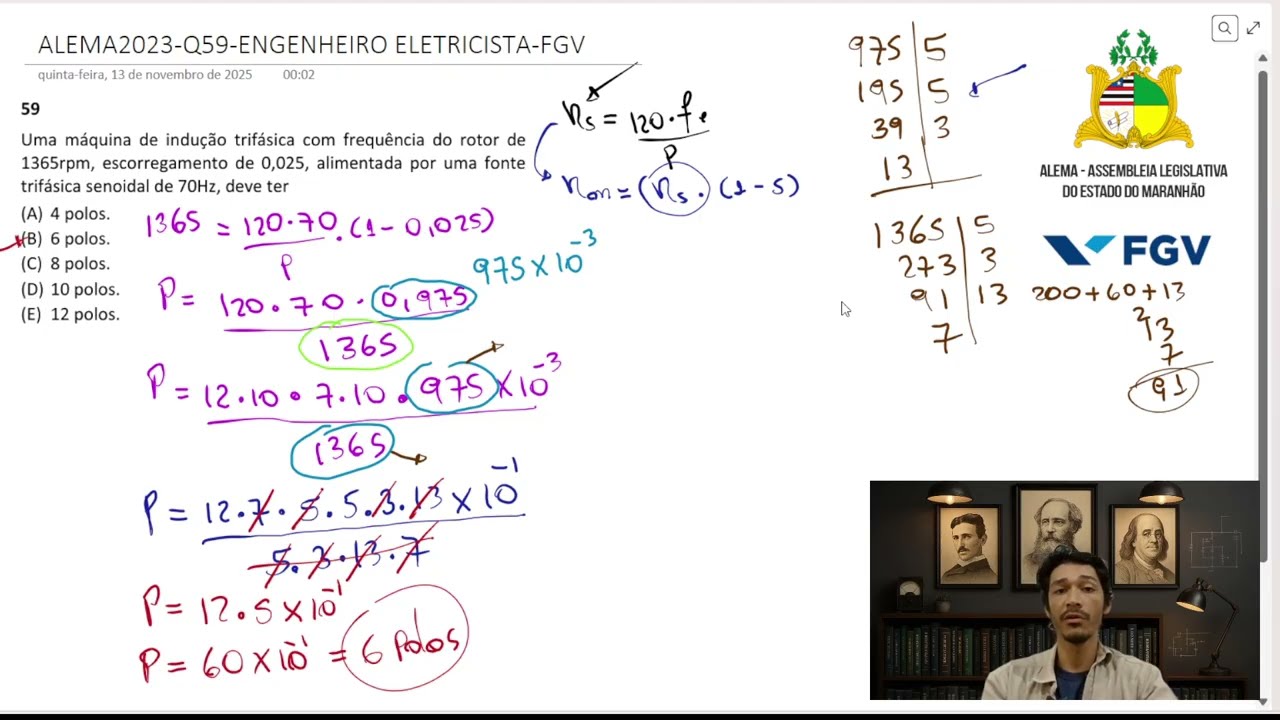 ALEMA2023-Q59-ENGENHEIRO ELETRICISTA-FGV
quinta-feira, 13 de novembro de 2025 00:02
59
Uma máquina de indução trifásica com frequência do rotor de
1365rpm, escorregamento de 0,025, alimentada por uma fonte
trifásica senoidal de 70Hz, deve ter
(A) 4 polos.
(B) 6 polos.
(C) 8 polos.
(D) 10 polos.
(E) 12 polos.
ns = 120.fe
P
nm = (ns.(1-s)
1365 = 120.70 .(1-0,025)
P
975 x 10^-3
P = 120.70.0,975
1365
P = 12.10.7.10.975 x 10^-3
1365
P = 12.7.5.5.3.13 x 10^-1
5.3.13.7
P = 12.5 x 10^-1
P = 60 x 10^-1 = 6 Polos
975 | 5
195 | 5
39 | 3
13
1365 | 5
273 | 3
91 | 13
7
200+60+13
2
13
7
91
ALEMA - ASSEMBLEIA LEGISLATIVA
DO ESTADO DO MARANHÃO
FGV